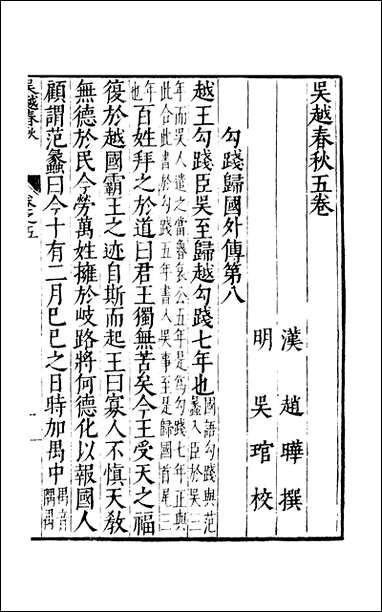 吳越春秋五卷
漢趙曄撰
明吳琯校
勾踐歸國外傳第八
越王勾踐臣吳至歸越勾踐七年也國語勾踐與范蠡入臣於吳三
年而吳人遣之當魯哀公五年是爲勾踐七年正與
此合此書於勾踐五年書入吳事至是歸國首尾三
年也百姓拜之於道曰君王獨無苦矣今王受天之福
復於越國霸王之迹自斯而起王曰寡人不慎天敎
無德於民今勞萬姓擁於岐路將何德化以報國人
顧謂范蠡曰今十有二月巳巳之日時加禺中禺音隅禺
吳越春秋
卷之五
一